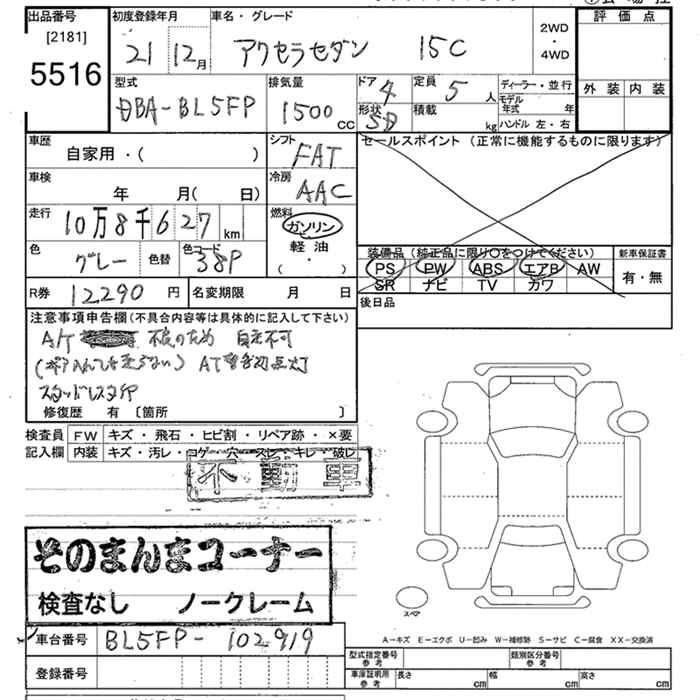 出品番号 初度登録年月 車名・グレード 評価点
[2181]
5516
21 12月 アクセラセダン 15C 2WD・4WD
外装 内装
型式 排気量 ドア 4 定員 5人 ディーラー・並行
DBA-BL5FP 1500cc 形状 SD 積載 kg モデル年式 年
ハンドル 左・右
車歴 シフト セールスポイント (正常に機能するものに限ります)
自家用・( ) FAT
車検 冷房
年 月( 日) AAC
走行 燃料
10万8千627km ガソリン
軽油
( ・ )
色 色替 色コード
グレー 38P
装備品 (純正品に限り〇をつけてください) 新車保証書
PS PW ABS エアB AW 有・無
SR ナビ TV カワ
R券 12290円 名変期限 月 日 後日品
注意事項申告欄(不具合内容等は具体的に記入して下さい)
A/T 不良のため 自走不可
(ギア入れても走らない) AT警告灯点灯
スタッドレスタイヤ
修復歴 有 〔箇所 〕
検査員 FW キズ・飛石・ヒビ割・リペア跡・×要
記入欄 内装 キズ・汚レ・コゲ・穴・スレ・キレ・破レ
不動車
そのまんまコーナー
検査なし ノークレーム
スペア
A-キズ E-エクボ U-凹み W-補修跡 S-サビ C-腐食 XX-交換済
車台番号 BL5FP-102919
型式指定番号 参考 類別区分番号 参考
登録番号
車庫証明用 参考 長さ cm 幅 cm 高さ cm